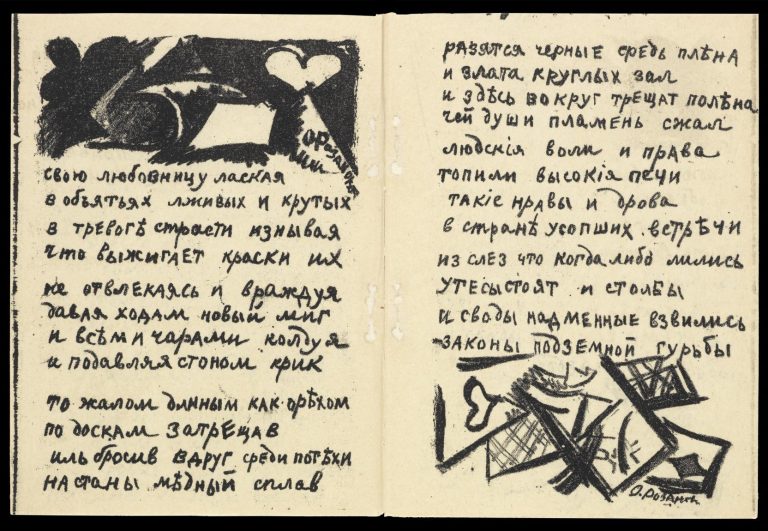 О Розанова
свою любовницу лаская
в объятьях лживых и крутых
в тревогѣ страсти изнывая
что выжигает краски их
не отвлекаясь и враждуя
давля ходам новый миг
и всѣми чарами колдуя
и подавляя стоном крик
то жалом длинным как орѣхом
по доскам затрещав
иль бросив вдруг среди потѣхи
на станы мѣдный сплав
разятся черные средь плѣна
и злата круглых зал
и здѣсь вокруг трещат полѣна
чей души пламень сжал
людскія воли и права
топили высокія печи
такіе нравы и дрова
в странѣ усопших встрѣчи
из слез что когда либо лились
утесы стоят и столбы
и своды надменные взвились
законы подземной гурьбы
О. Розанова